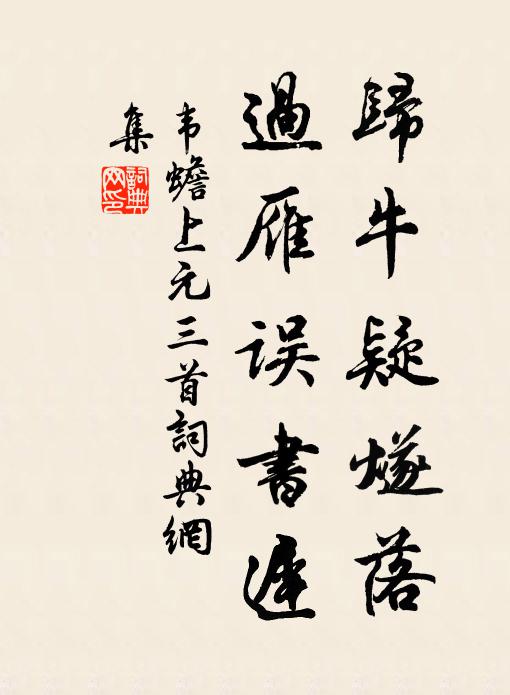 歸牛疑燧落
過雁误書遲
韦蟾上元三首詞典網
集
詞典网印